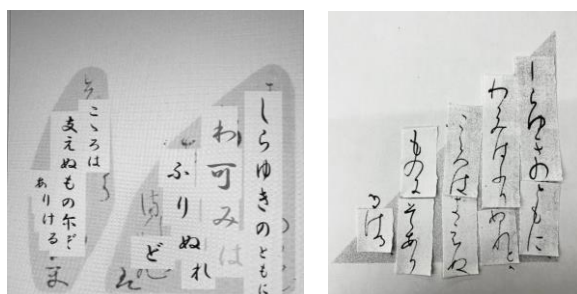 しらゆきのともに
わ可みは
ふりぬれ
ど
こゝろは
支えぬもの尓ぞ
ありける
しらゆきのともに
わかみはふりぬれと
こゝろはきえぬ
ものにそあり
ける